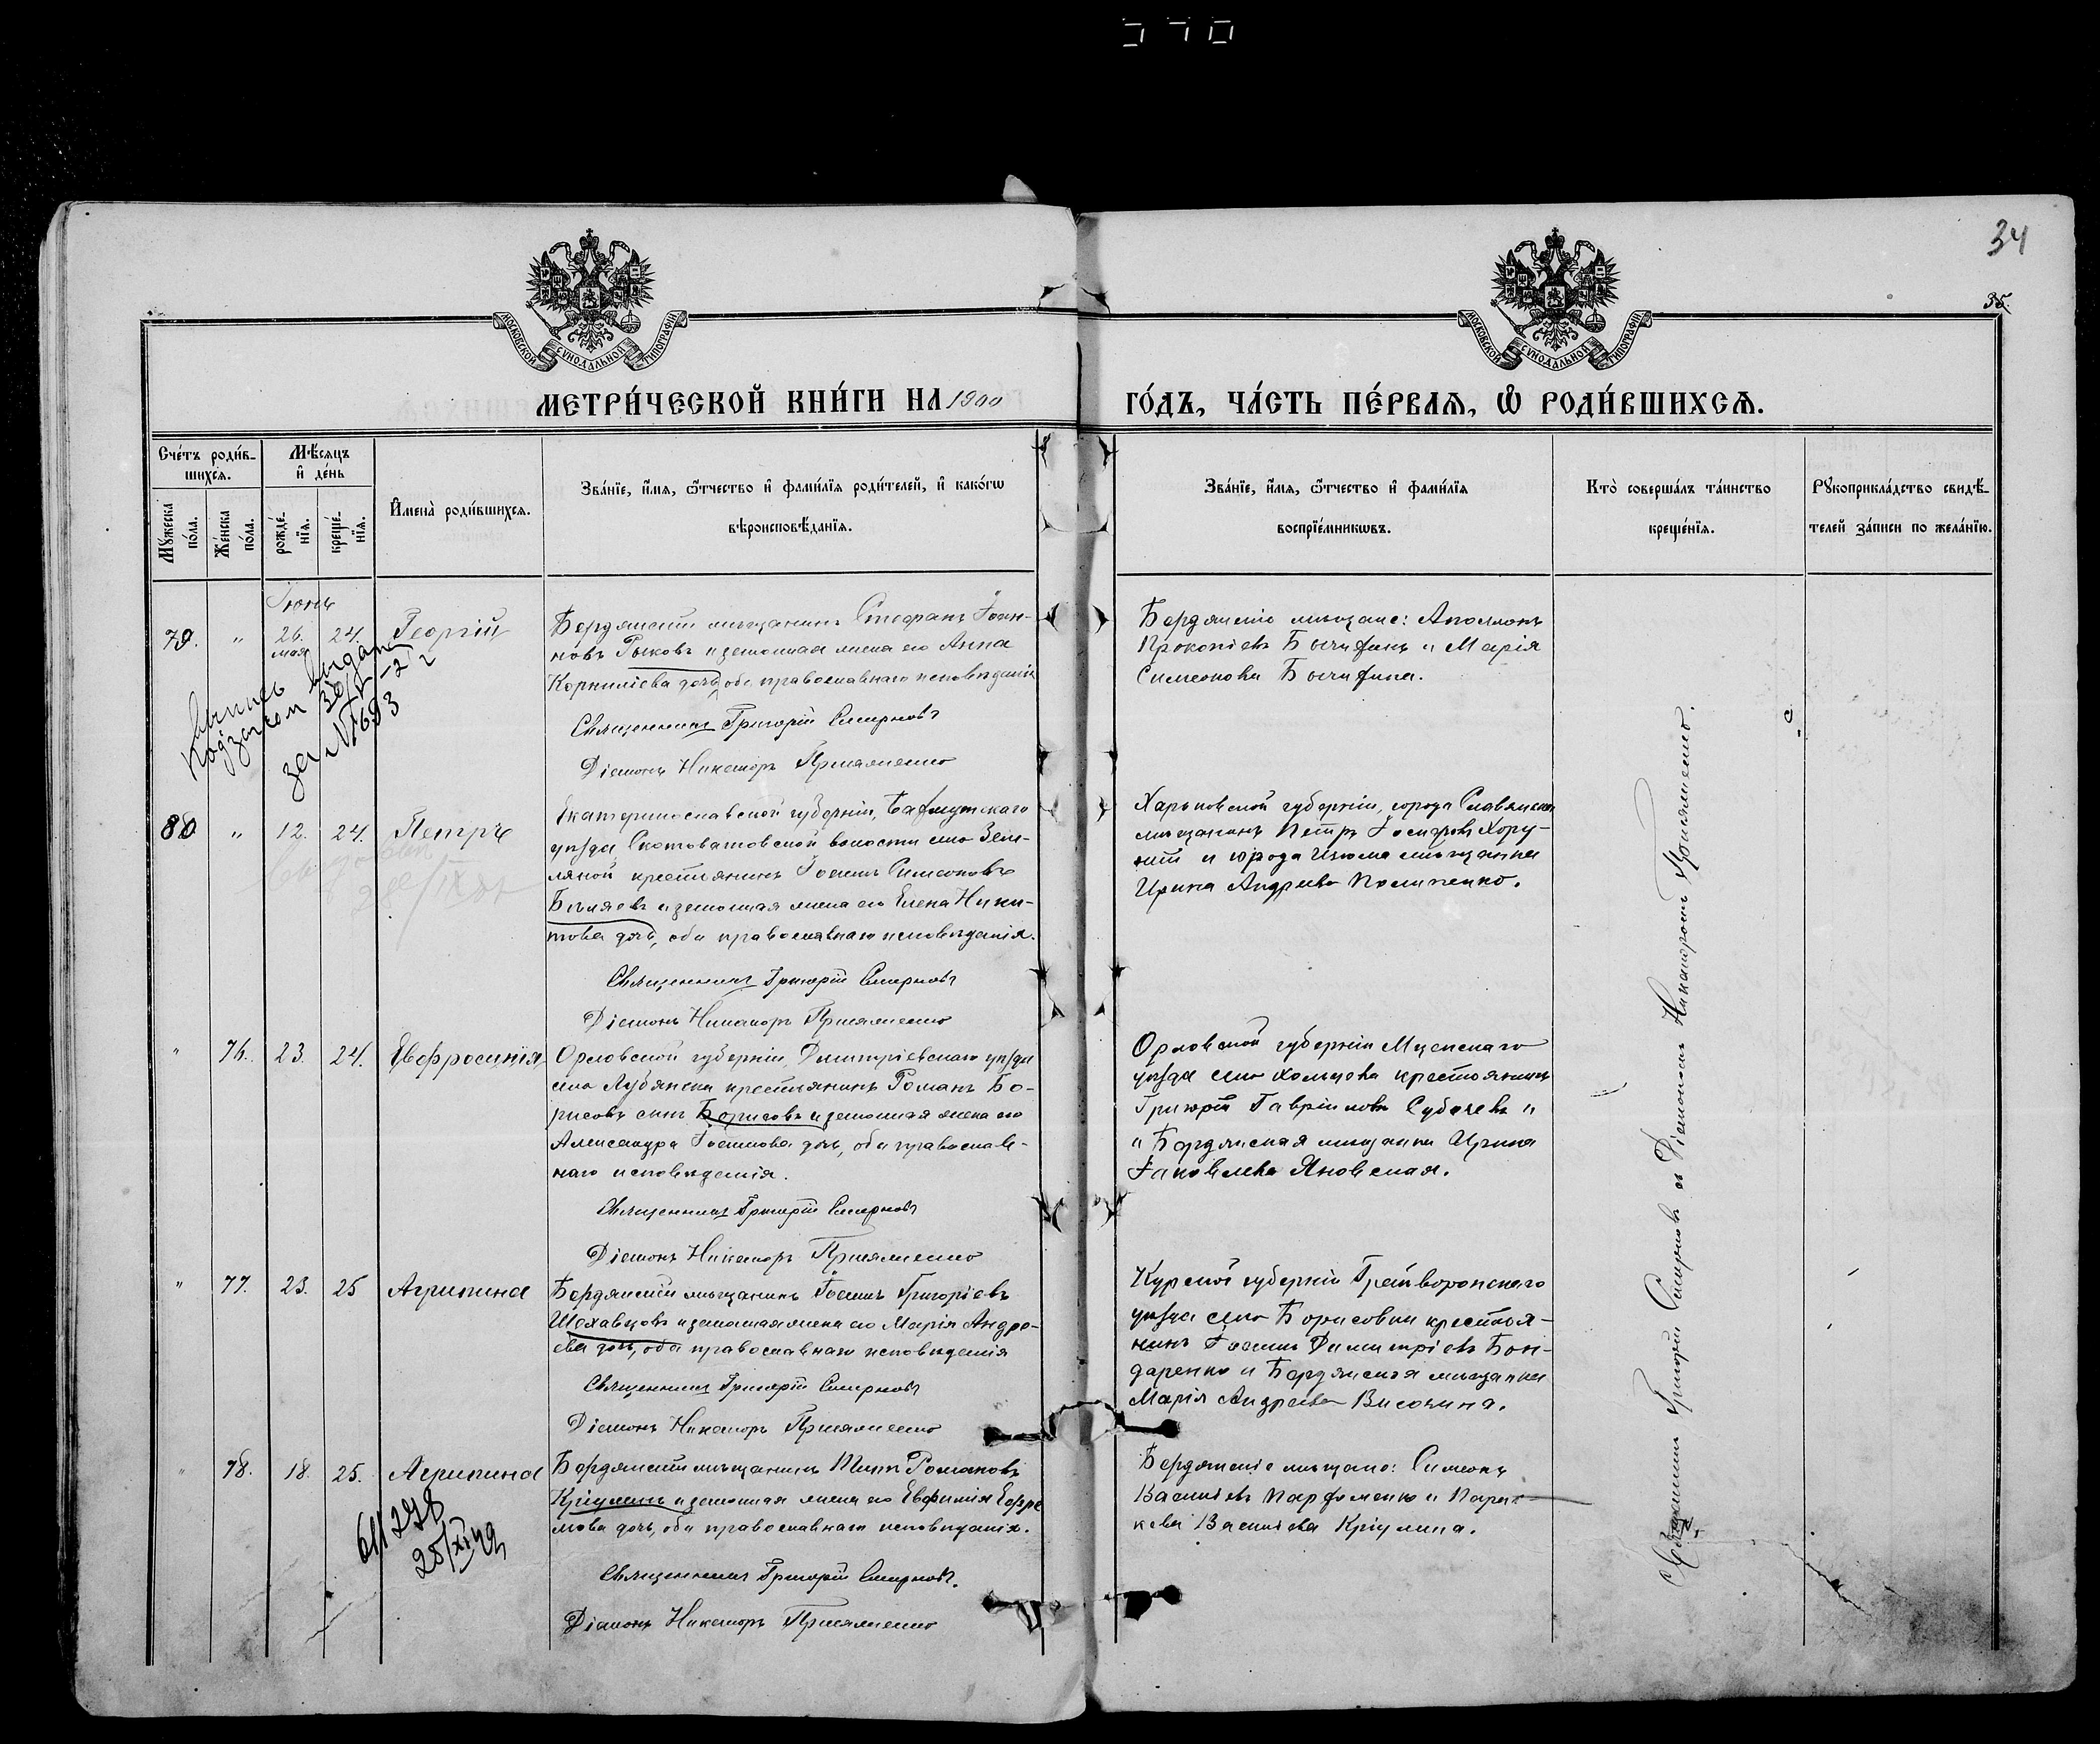 34
35.
МОСКОВСКОЙ СѴНОДАЛЬНОЙ ТИПОГРАФІИ
МОСКОВСКОЙ СѴНОДАЛЬНОЙ ТИПОГРАФІИ
МЕТРИ́ЧЕСКОЙ КНИ́ГИ НА 1900
ГО́ДЪ, ЧА́СТЬ ПЕ́РВАѦ, Ѿ РОДИ́ВШИХСѦ.
Сче́тъ роди́в-
шихсѧ.
Мꙋжеска по́ла.
Же́нска по́ла.
Мѣ́сѧцъ и҆ де́нь
рожде́-
нїѧ.
креще́-
нїѧ.
И҆мена̀ роди́вшихсѧ.
Зва́нїе, и҆́мѧ, ѻ҆́тчество и҆ фами́лїѧ роди́телей, и҆ како́гѡ
вѣроисповѣ́данїѧ.
Зва́нїе, и҆́мѧ, ѻ҆́тчество и҆ фами́лїѧ
воспрїе́мникѡвъ.
Кто̀ соверша́лъ та́инство
креще́нїѧ.
Рꙋкоприкла́дство свидѣ́-
телей за́писи по жела́нїю.
Іюнь
79. " 26. мая 24. Георгій
Бердянскій мѣщанинъ Стефанъ Іоан-
новъ Рыковъ и законная жена его Анна
Корниліева дочь, оба православнаго исповѣданія
Священникъ Григорій Смирновъ
Діаконъ Никаноръ Присяженко
Бердянскіе мѣщане: Аполлонъ
Прокопіевъ и Марія
Симеонова
выдан
за № 683
80 " 12. 24. Петръ
Екатеринославской губерніи, Бахмутскаго
уѣзда Скотоватовской волости села Зем-
ляной крестьянинъ Іоаннъ Симеоновъ
Бѣляевъ и законная жена его Елена Ники-
това дочь, оба православнаго исповѣданія.
Священникъ Григорій Смирновъ
Діаконъ Никаноръ Присяженко
Харьковской губерніи, города Славянска
мѣщанинъ Петръ Іосифовъ Хору-
жій и города Изюма мѣщанка
Ирина Андреева Полипенко.
" 76. 23. 24. Евфросинія
Орловской губерніи, Дмитріевскаго уѣзда
села Лубянки крестьянинъ Романъ Бо-
рисовъ сынъ Борисовъ и законная жена его
Александра Іоаннова дочь, оба православ-
наго исповѣданія.
Священникъ Григорій Смирновъ
Діаконъ Никаноръ Присяженко
Орловской губерніи Мценскаго
уѣзда села крестьянинъ
Григорій Гавріиловъ Субачевъ и
и Бердянская мѣщанка Ирина
Іаковлева Яновская.
" 77. 23. 25 Агрипина
Бердянскій мѣщанинъ Іоаннъ Григоріевъ
Шехавцовъ и законная жена его Марія Андре-
ева дочь, оба православнаго исповѣданія
Священникъ Григорій Смирновъ
Діаконъ Никаноръ Присяженко
Курской губерніи Грайворонскаго
уѣзда села Борисовки крестья-
нинъ Іоаннъ Димитріевъ Бон-
даренко и Бердянская мѣщанка
Марія Андреева Височина.
" 78. 18. 25. Агрипина
Бердянскій мѣщанинъ Титъ Романовъ
Кріулинъ и законная жена его Евфимія Ефре
мова дочь, оба православнаго исповѣданія.
Священникъ Григорій Смирновъ.
Діаконъ Никаноръ Присяженко
Бердянскіе мѣщане: Симеонъ
Василіевъ Парфоменко и Парас-
кева Василіева Кріулина.
25/XI
Священникъ Григорій Смирновъ съ Діакономъ Никаноромъ Присяженко.